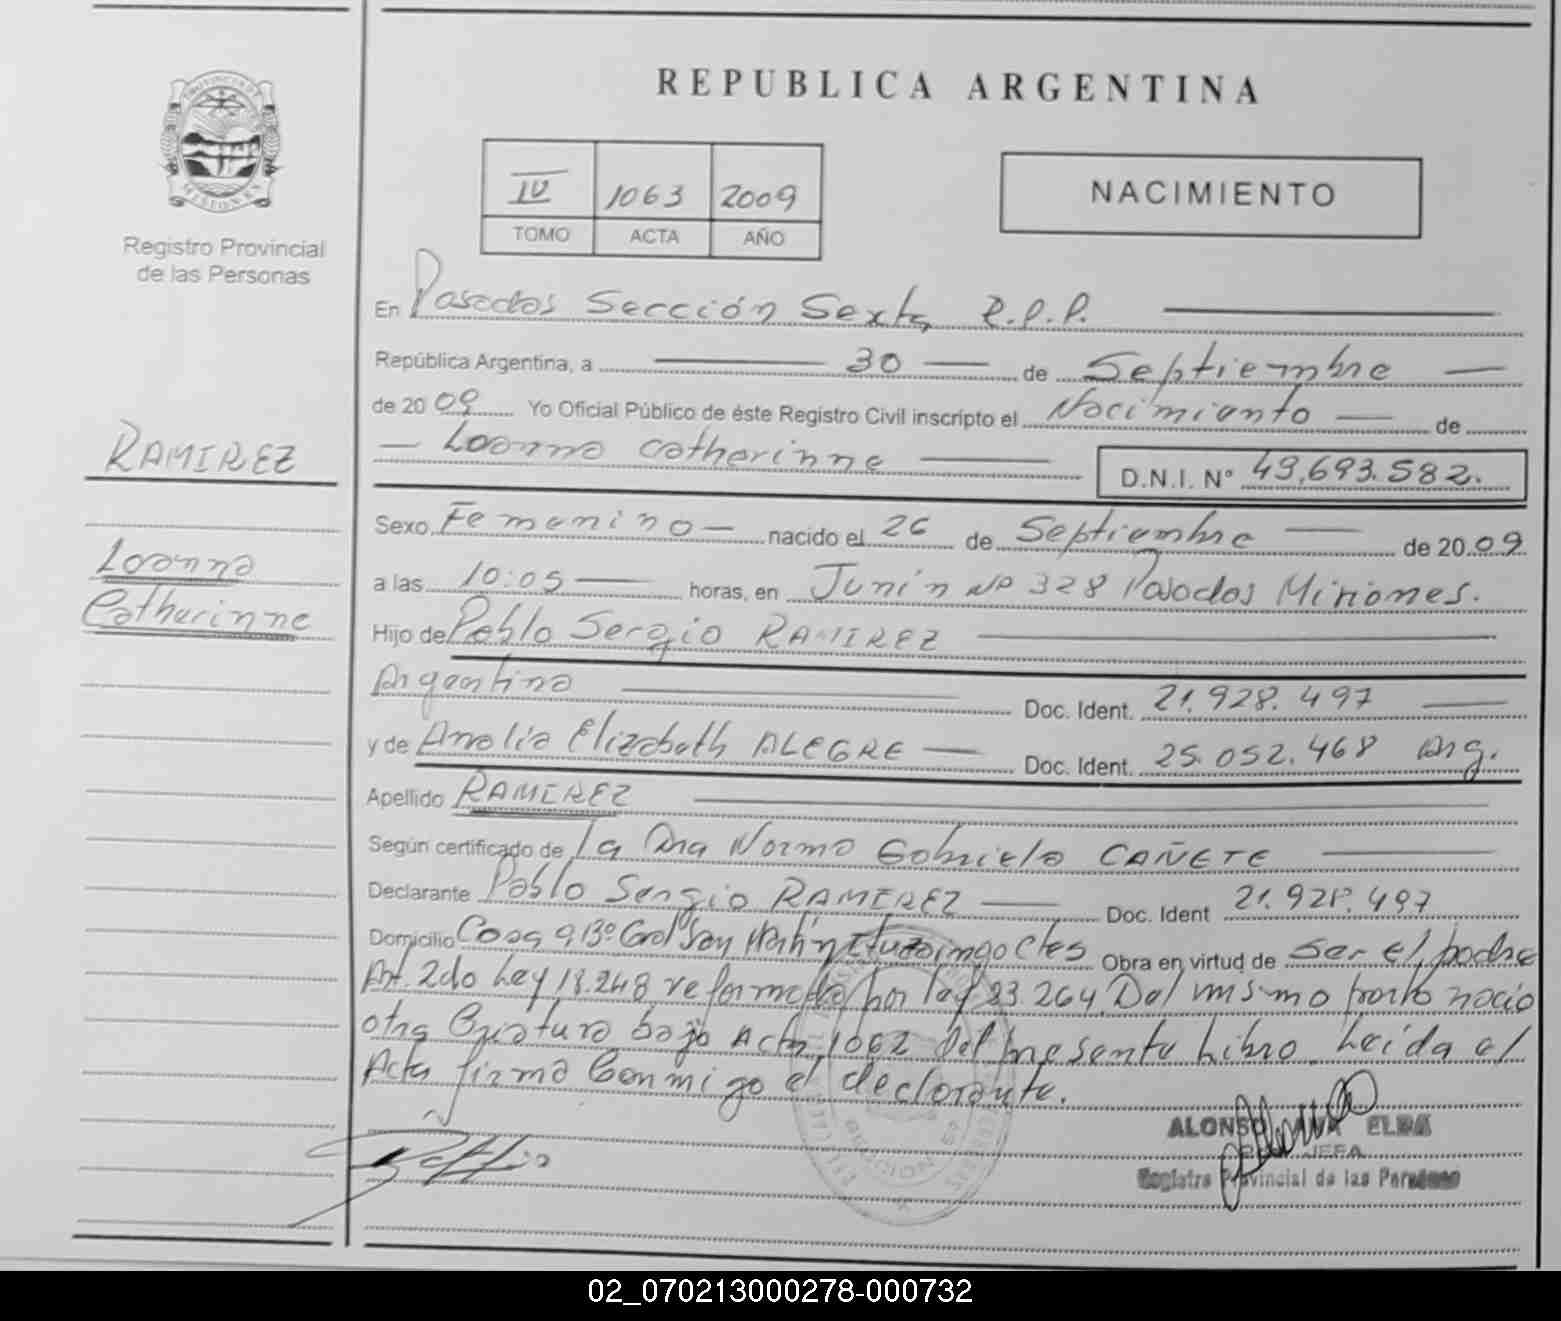 REPUBLICA ARGENTINA
PROVINCIA DE
MISIONES
Registro Provincial
de las Personas
IV 1063 2009
TOMO ACTA AÑO
NACIMIENTO
En Posadas Sección Sexta R.P.P.
República Argentina, a 30 de Septiembre
de 2009 Yo Oficial Público de éste Registro Civil inscripto el Nacimiento de
Loanna Catherinne D.N.I. Nº 49.693.582.
RAMIREZ
Loanna
Catherinne
Sexo Femenino nacido el 26 de Septiembre de 2009
a las 10:05 horas, en Junín Nº 328 Posadas Misiones.
Hijo de Pablo Sergio RAMIREZ
Argentino Doc. Ident. 21.928.497
y de Analia Elizabeth ALEGRE Doc. Ident. 25.052.468 Arg.
Apellido RAMIREZ
Según certificado de la Dra Norma Gabriela CAÑETE
Declarante Pablo Sergio RAMIREZ Doc. Ident 21.928.497
Domicilio Casa 9 Bº Gral San Martín Ituzaingo Ctes Obra en virtud de ser el padre
Art. 2do Ley 18.248 reformada por ley 23.264. Del mismo parto nacio
otra Criatura bajo Acta 1062 del presente Libro. Leida el
Acta firma Conmigo el declarante.
ALONSO ELDA
JEFA
Registro Provincial de las Personas
02_070213000278-000732